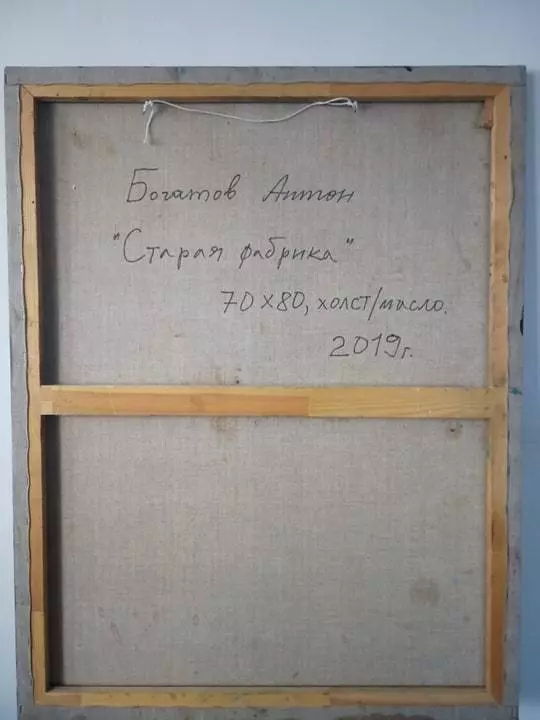 Богатов Антон
"Старая фабрика"
70х80, холст/масло.
2019г.